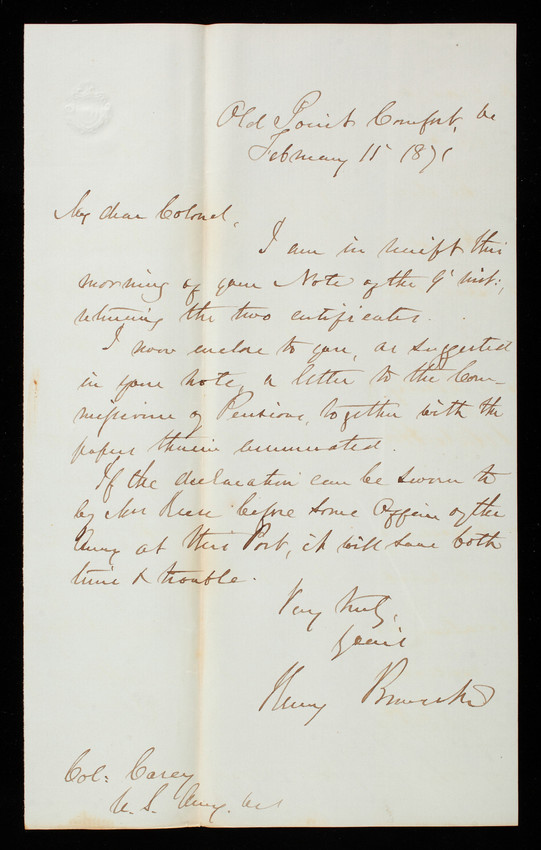 Old Point Comfort, Va
February 15 1871
My dear Colonel,
I am in receipt this
morning of your Note of the 9' inst:,
returning the two certificates.
I now enclose to you, as suggested
in your note, a letter to the Com-
missioner of Pensions, together with the
papers therein enumerated.
If the declaration can be sworn to
by Mr before some Officer of the
Army at this Post, it will save both
time & trouble.
Very truly,
Yours
Henry
Col: Casey
U. S. Army.